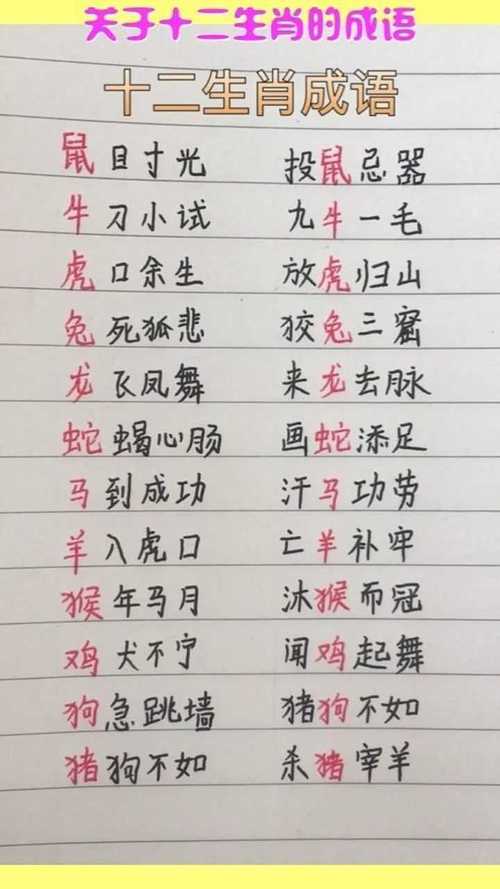 关于十二生肖的成语
十二生肖成语
鼠目寸光 投鼠忌器
牛刀小试 九牛一毛
虎口余生 放虎归山
兔死狐悲 狡兔三窟
龙飞凤舞 来龙去脉
蛇蝎心肠 画蛇添足
马到成功 汗马功劳
羊入虎口 亡羊补牢
猴年马月 沐猴而冠
鸡犬不宁 闻鸡起舞
狗急跳墙 猪狗不如
猪狗不如 杀猪宰羊